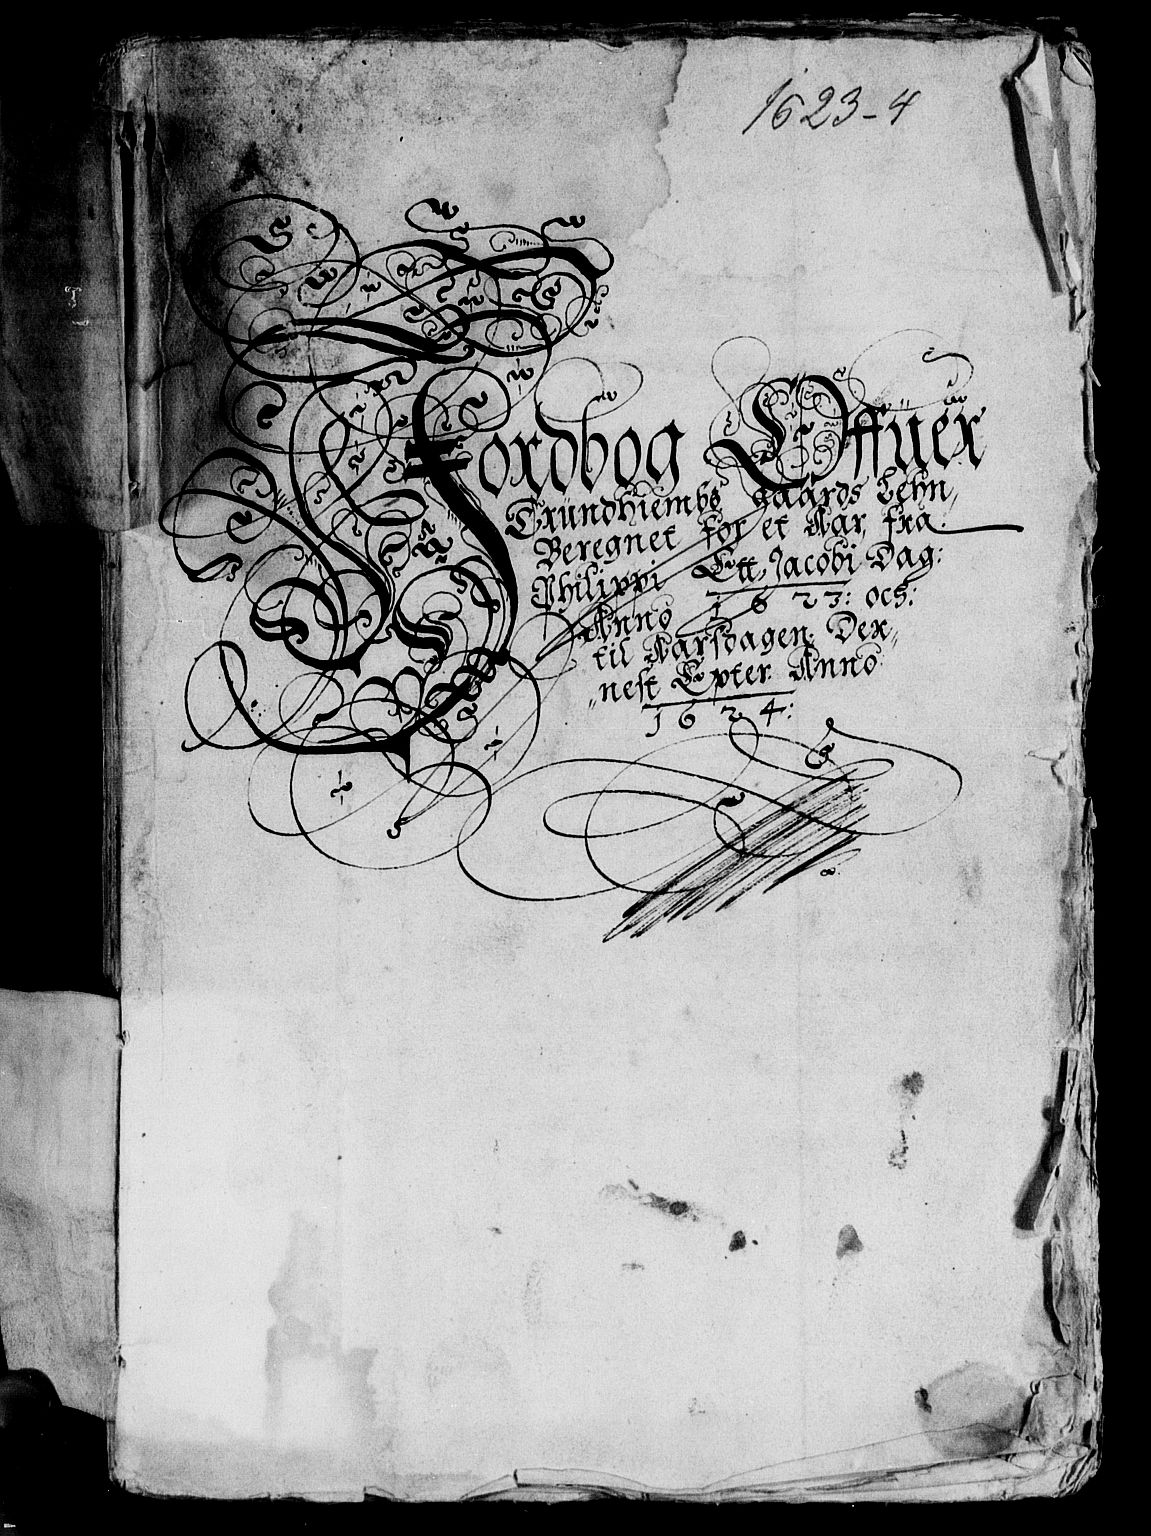 1623-4
Jordbog Offuer
Trundhiembs gaards Lehn,
Beregnet for et Aar, fra
Philippi Ett Jacobi Dag:
Anno 1623: och:
til Aarsdagen Der„
„nest Epter Anno
1624: